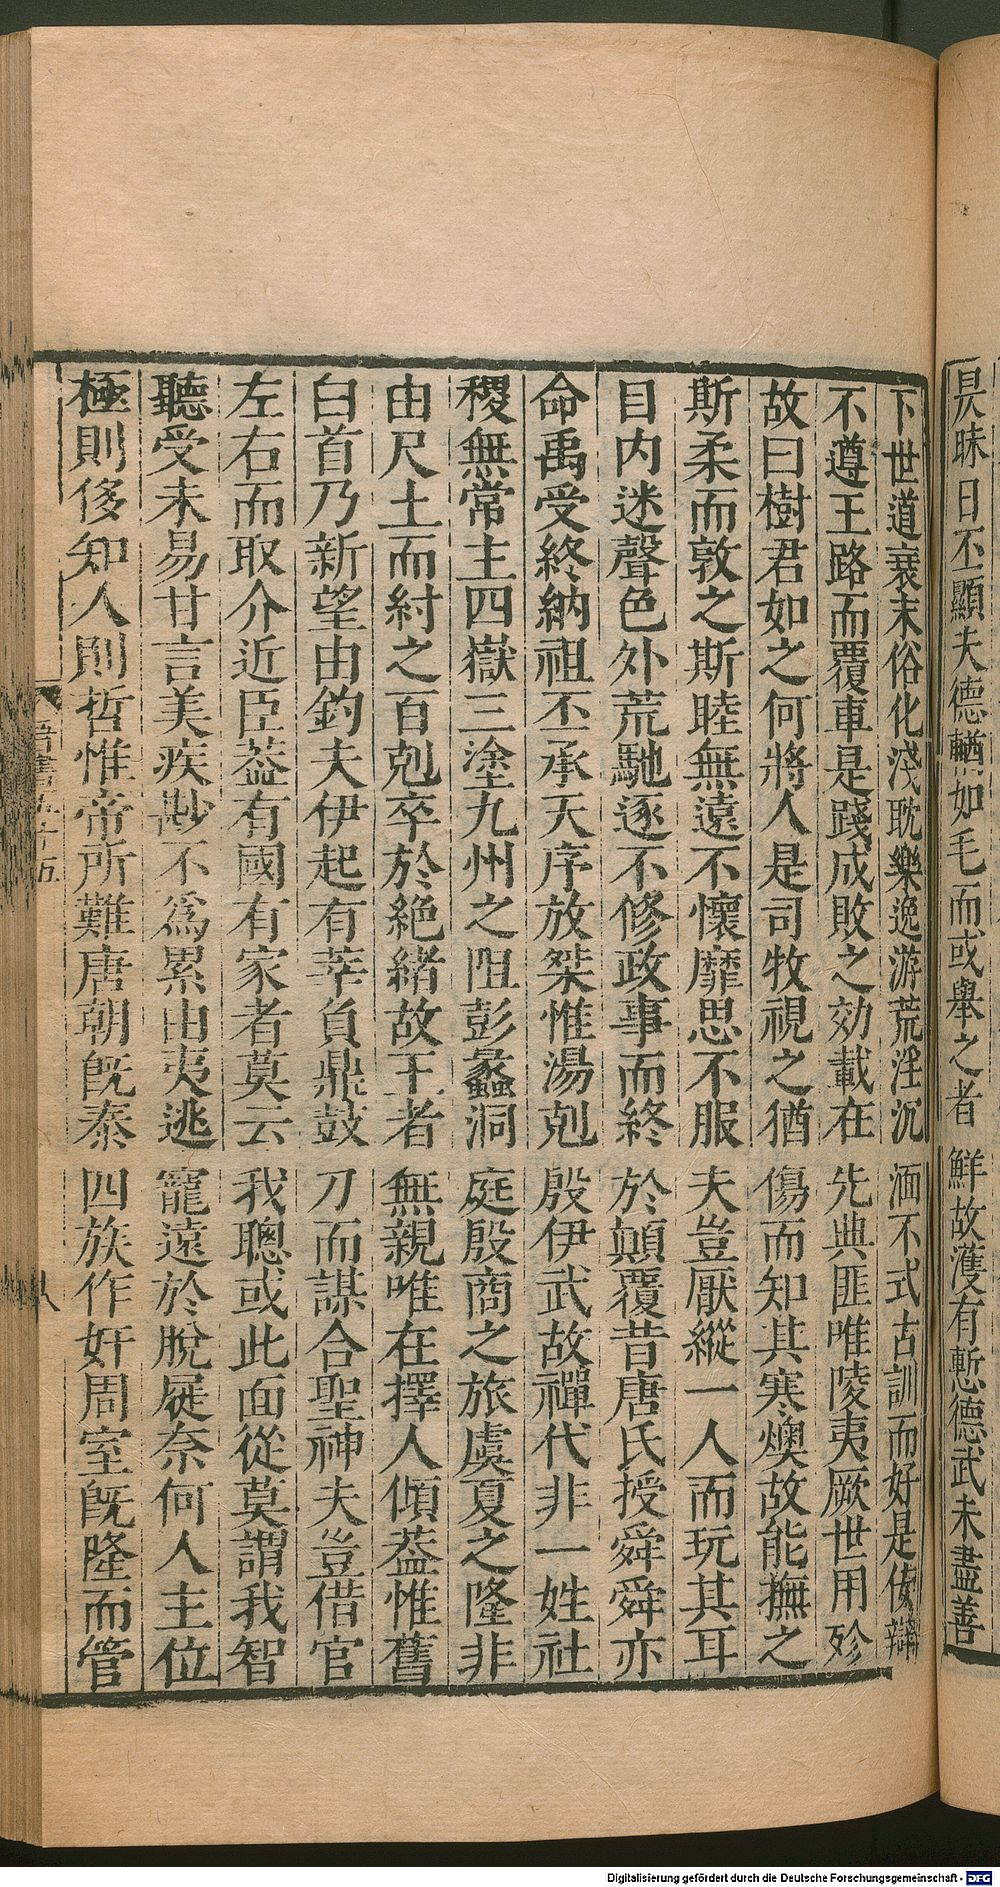 昃昧日丕顯夫德輶如毛而或舉之者鮮故濩有慙德武未盡善
下世道衰末俗化淺耽樂逸游荒淫沉湎不式古訓而好是佞辯
不遵王路而覆車是踐成敗之効載在先典匪唯陵夷厥世用殄
故曰樹君如之何將人是司牧視之猶傷而知其寒燠故能撫之
斯柔而敦之斯睦無遠不懷靡思不服夫豈厭縱一人而玩其耳
目内迷聲色外荒馳逐不修政事而終於顛覆昔唐氏授舜舜亦
命禹受終納祖丕承天序放桀惟湯剋殷伊武故禪代非一姓社
稷無常主四嶽三塗九州之阻彭蠡洞庭殷商之旅虞夏之隆非
由尺土而紂之百剋卒於絶緒故王者無親唯在擇人傾葢惟舊
白首乃新望由釣夫伊起有莘負鼎鼓刀而謀合聖神夫豈借官
左右而取介近臣葢有國有家者莫云我聰或此面從莫謂我智
聽受未易甘言美疾尠不爲累由夷逃寵遠於脫屣奈何人主位
極則侈知人則哲惟帝所難唐朝既泰四族作奸周室既隆而管
晉書五十五
八
Digitalisierung gefördert durch die Deutsche Forschungsgemeinschaft - DFG